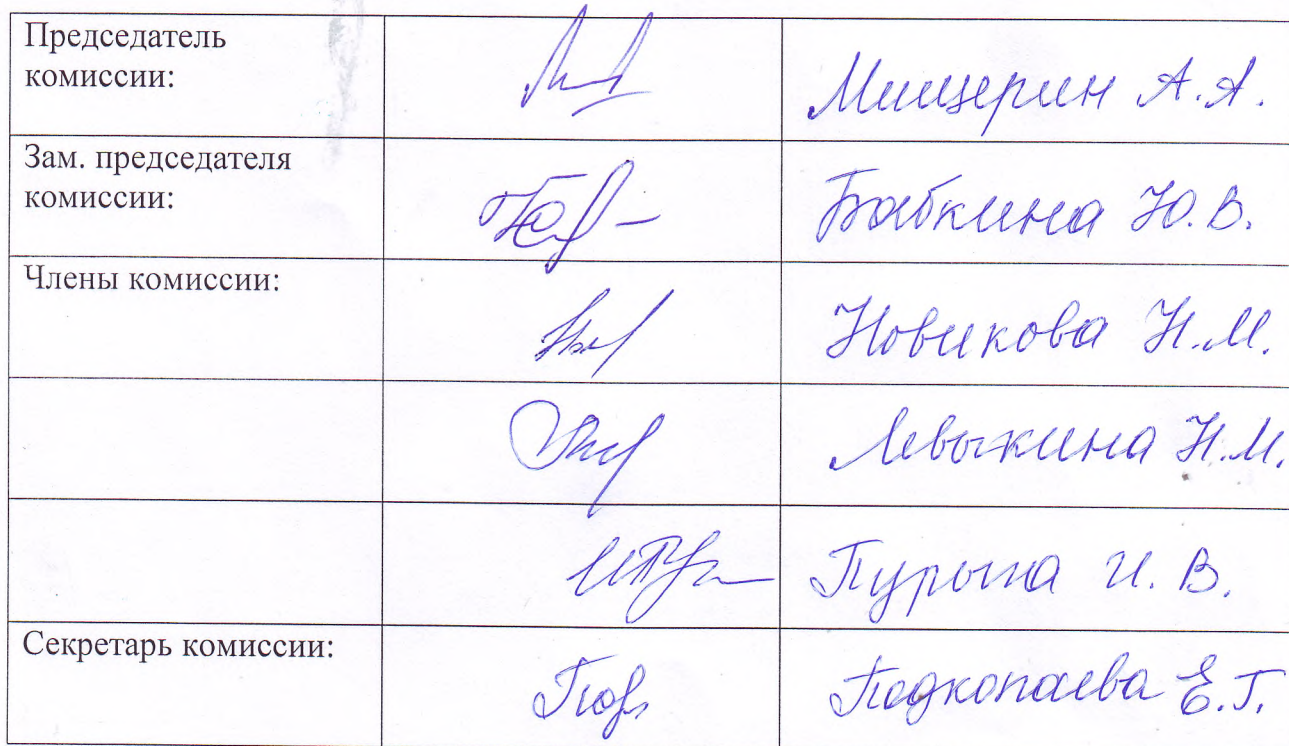 Председатель
комиссии:
Мищерин А.А.
Зам. председателя
комиссии:
Бабкина Ю.В.
Члены комиссии:
Новикова Н.М.
Левыкина Н.М.
И. В.
Секретарь комиссии:
Подкопаева Е.Г.